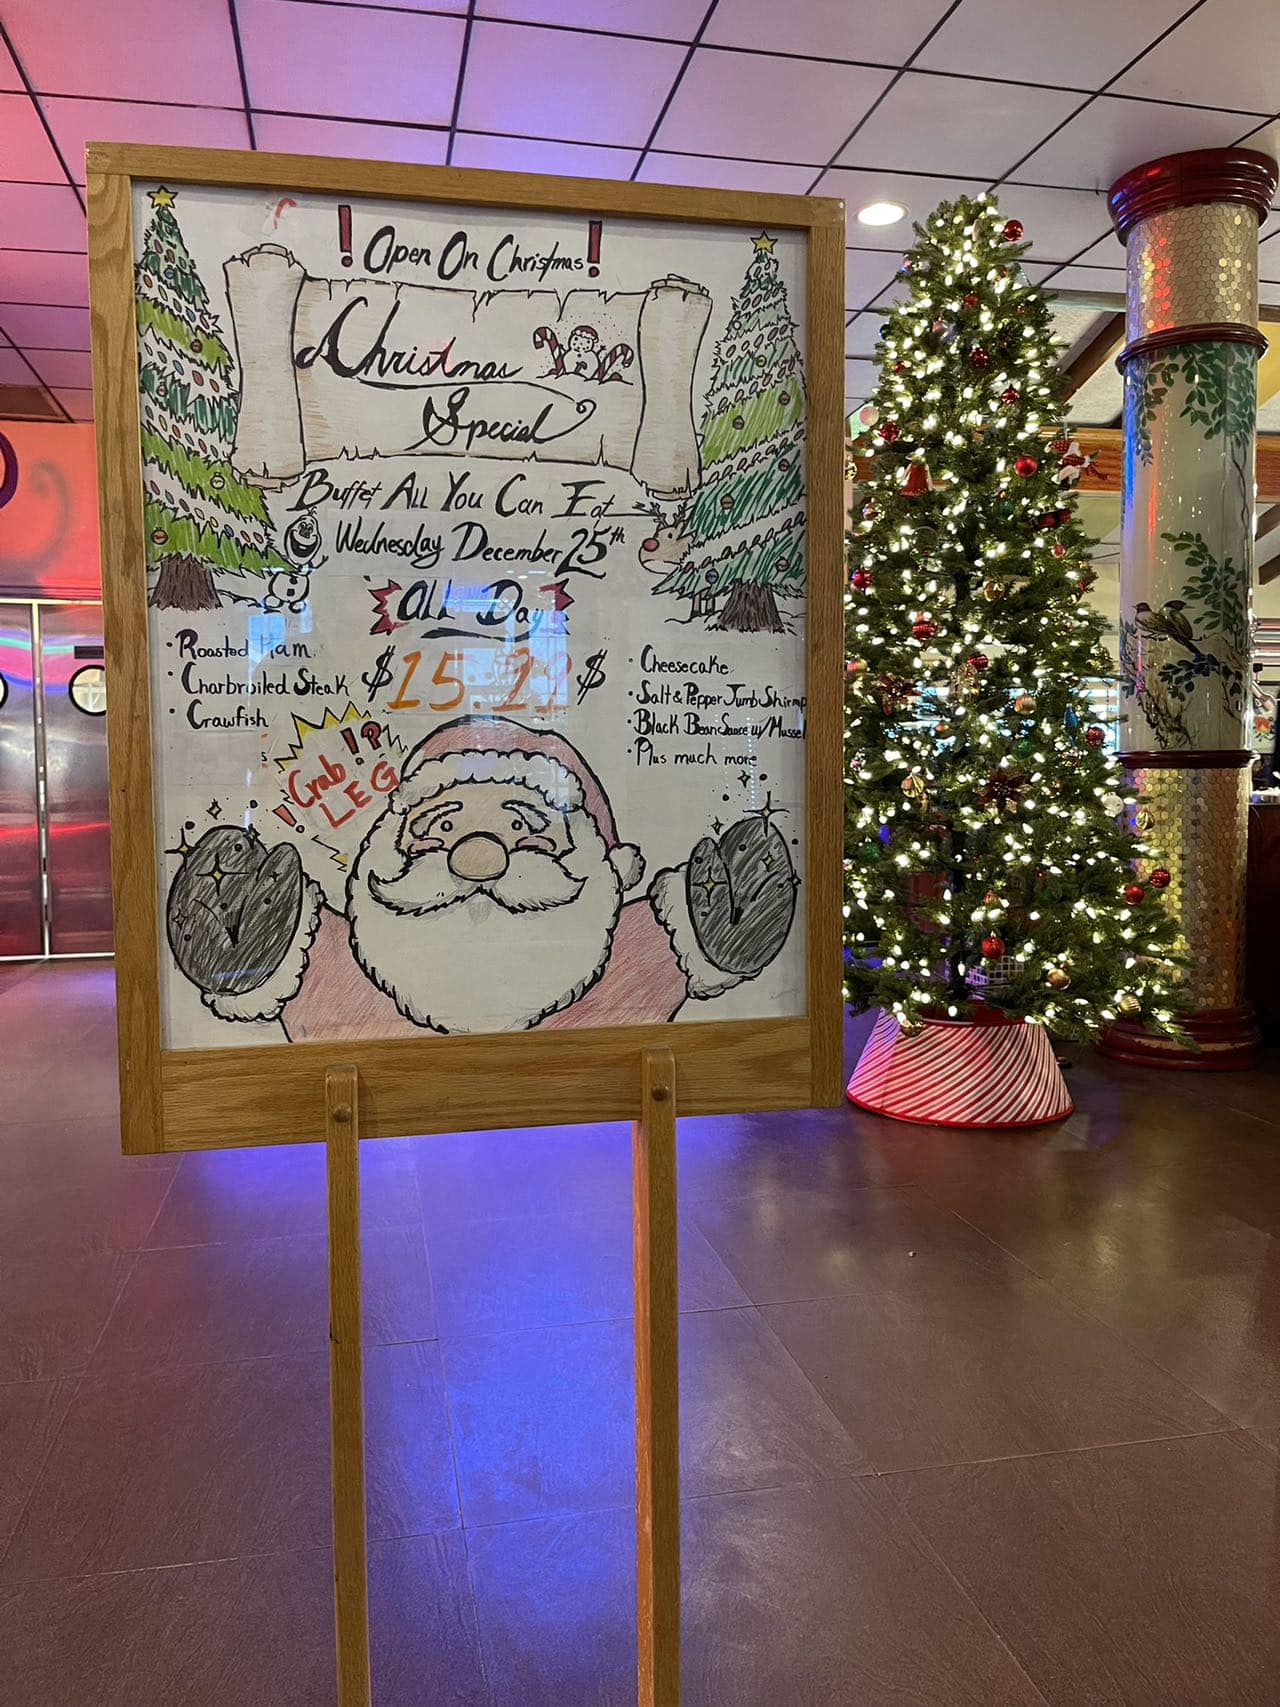 ! Open On Christmas !
Christmas
Special
Buffet All You Can Eat
Wednesday December 25th
ALL Day
$15.99$
• Roasted Ham
• Charbroiled Steak
• Crawfish
Crab!?
! LEG
• Cheesecake
• Salt & Pepper Jumb Shirmp
• Black Bean Sauce w/ Mussel
• Plus much more